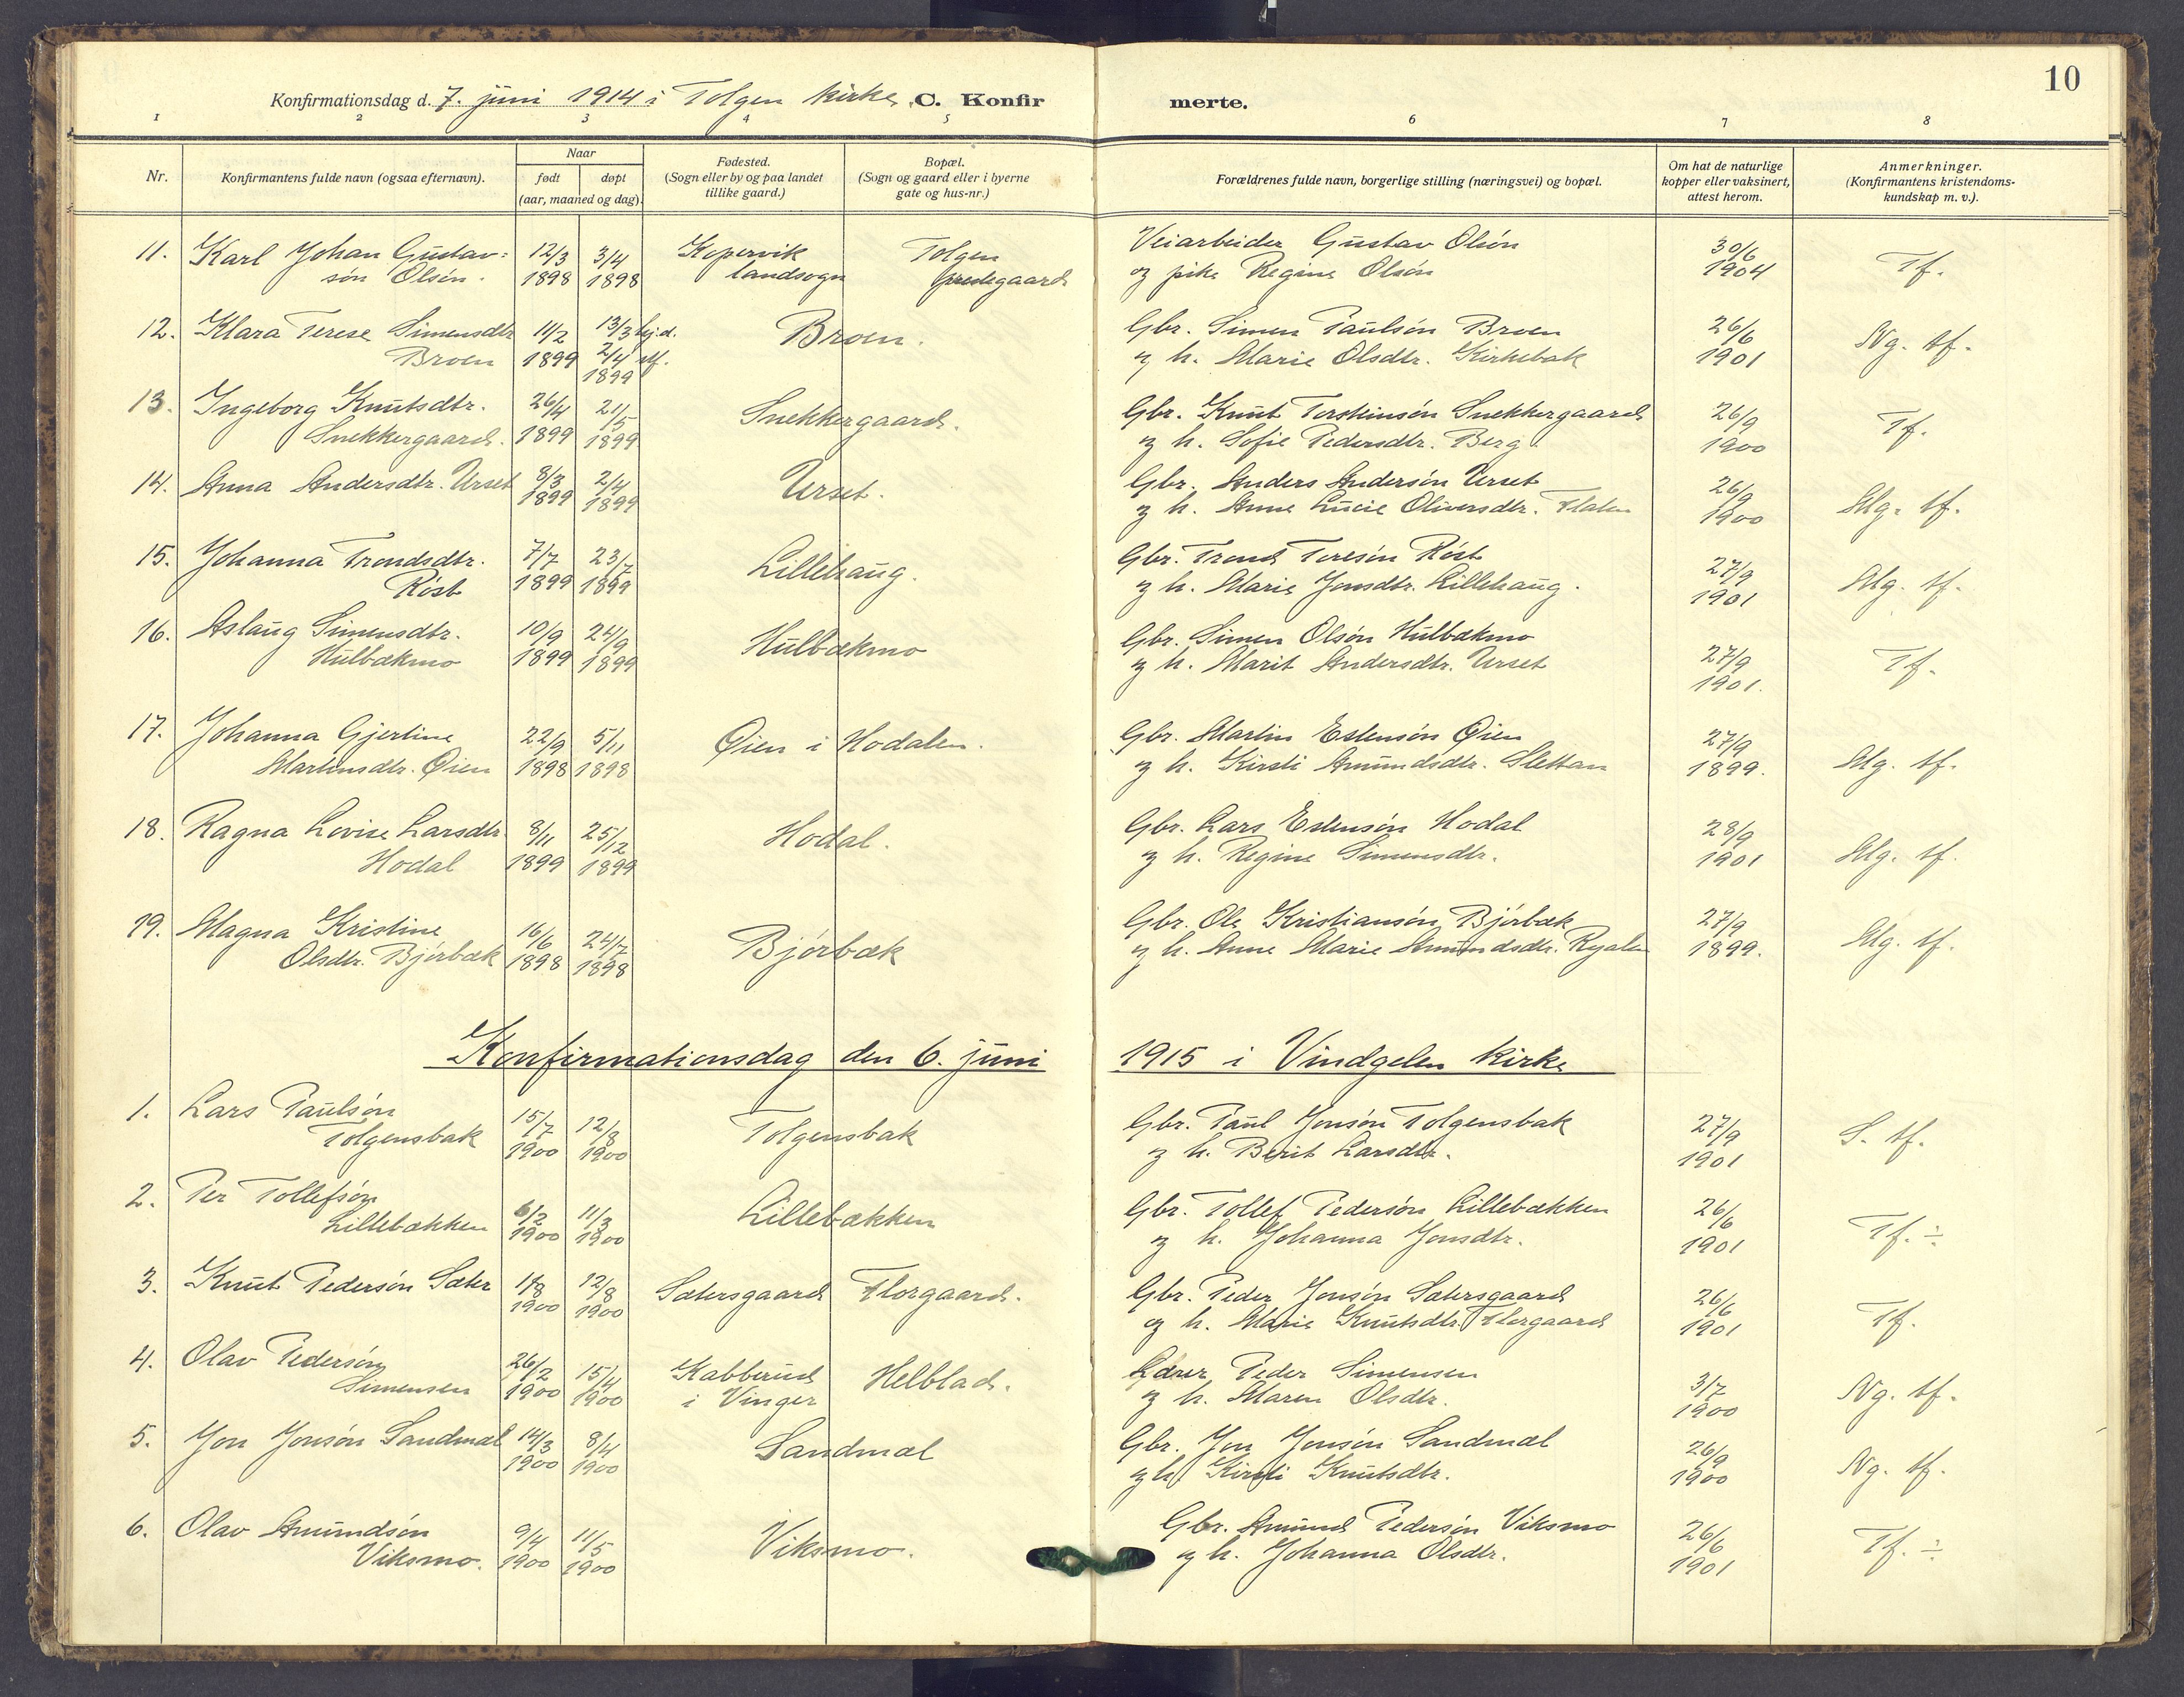 10
Konfirmationsdag d. 7. juni 1914 i Tolgen kirke. C. Konfirmerte.
1 2 3 4 5 6 7 8
Nr.
Konfirmantens fulde navn (ogsaa efternavn).
Naar
født døpt
(aar, maaned og dag).
Fødested.
(Sogn eller by og paa landet
tillike gaard.)
Bopæl.
(Sogn og gaard eller i byerne
gate og hus-nr.)
Forældrenes fulde navn, borgerlige stilling (næringsvei) og bopæl.
Om hat de naturlige
kopper eller vaksinert,
attest herom.
Anmerkninger.
(Konfirmantens kristendoms-
kundskap m. v.).
11. Karl Johan Gustav= 12/3 3/4 Kopervik Tolgen Veiarbeider Gustav Olsøn 30/6 Tf.
søn Olsén. 1898 1898 landsogn prestegaard og pike Regine Olsøn 1904
12. Klara Terese Simensdtr 11/2 13/3 hj.d. Broen. Gbr. Simen Paulsøn Broen 26/6 Ng. tf.
Broen 1899 2/4 stf. og h. Marie Olsdtr. Kirkebak 1901
1899
13. Ingeborg Knutsdtr. 26/4 21/5 Snekkergaard. Gbr. Knut Torsteinsøn Snekkergaard 26/9 Tf.
Snekkergaard. 1899 1899 og h. Sofie Pedersdtr. Berg 1900
14. Anna Andersdtr. Urset 8/3 2/4 Urset. Gbr. Anders Andersøn Urset 26/9 Mg. tf.
1899 1899 og h. Anne Lucie Oliversdtr. Flaten 1900
15. Johanna Trondsdtr. 7/7 23/7 Lillehaug. Gbr. Trond Toresøn Røst 27/9 Mg. tf.
Røst 1899 1899 og h. Marie Jonsdtr. Lillehaug. 1901
16. Aslaug Simensdtr. 10/9 24/9 Hulbækmo Gbr. Simen Olsøn Hulbækmo 27/9 Tf.
Hulbækmo 1899 1899 og h. Marit Andersdtr. Urset 1901.
17. Johanna Gjertine 22/9 5/11 Øien i Hodalen. Gbr. Martin Estensøn Øien 27/9 Mg. tf.
Martinsdtr. Øien 1898 1898 og h. Kirsti Amundsdtr. Slettan 1899.
18. Ragna Lovise Larsdtr. 8/11 25/12 Hodal. Gbr. Lars Estensøn Hodal 28/9 Mg. tf.
Hodal 1899 1899 og h. Regine Simensdtr. 1901
19. Magna Kristine 16/6 24/7 Bjørbæk Gbr. Ole Kristiansøn Bjørbæk 27/9 Mg. tf.
Olsdtr. Bjørbæk 1898 1898 og h. Anne Marie Amundsdtr. Ryalen 1899.
Konfirmationsdag den 6. juni 1915 i Vindgelen kirke
1. Lars Paulsøn 15/7 12/8 Tolgensbak Gbr. Paul Jonsøn Tolgensbak 27/9 S. tf.
Tolgensbak 1900 1900 og h. Berit Larsdtr. 1901
2. Per Tollefsøn 6/2 11/3 Lillebækken Gbr. Tollef Pedersøn Lillebækken 26/6 Tf. ÷
Lillebækken 1900 1900 og h. Johanna Jonsdtr. 1901
3. Knut Pedersøn Sæter 1/8 12/8 Sætersgaard Florgaard. Gbr. Peder Jonsøn Sætersgaard 26/6 Tf.
1900 1900 og h. Marie Knutsdtr. Florgaard 1901
4. Olav Pedersøn 26/2 15/4 Kabberud Helblad. Peder Simensen 3/7 Ng. tf.
Simensen 1900 1900 i Vinger og h. Maren Olsdtr. 1900
5. Jon Jonsøn Sandmæl 14/3 8/4 Sandmæl Gbr. Jon Jonsøn Sandmæl 26/9 Ng. tf.
1900 1900 og h. Kirsti Knutsdtr. 1900
6. Olav Amundsøn 9/4 11/5 Viksmo. Gbr. Amund Pedersøn Viksmo 26/6 Tf. ÷
Viksmo. 1900 1900 og h. Johanna Olsdtr. 1901